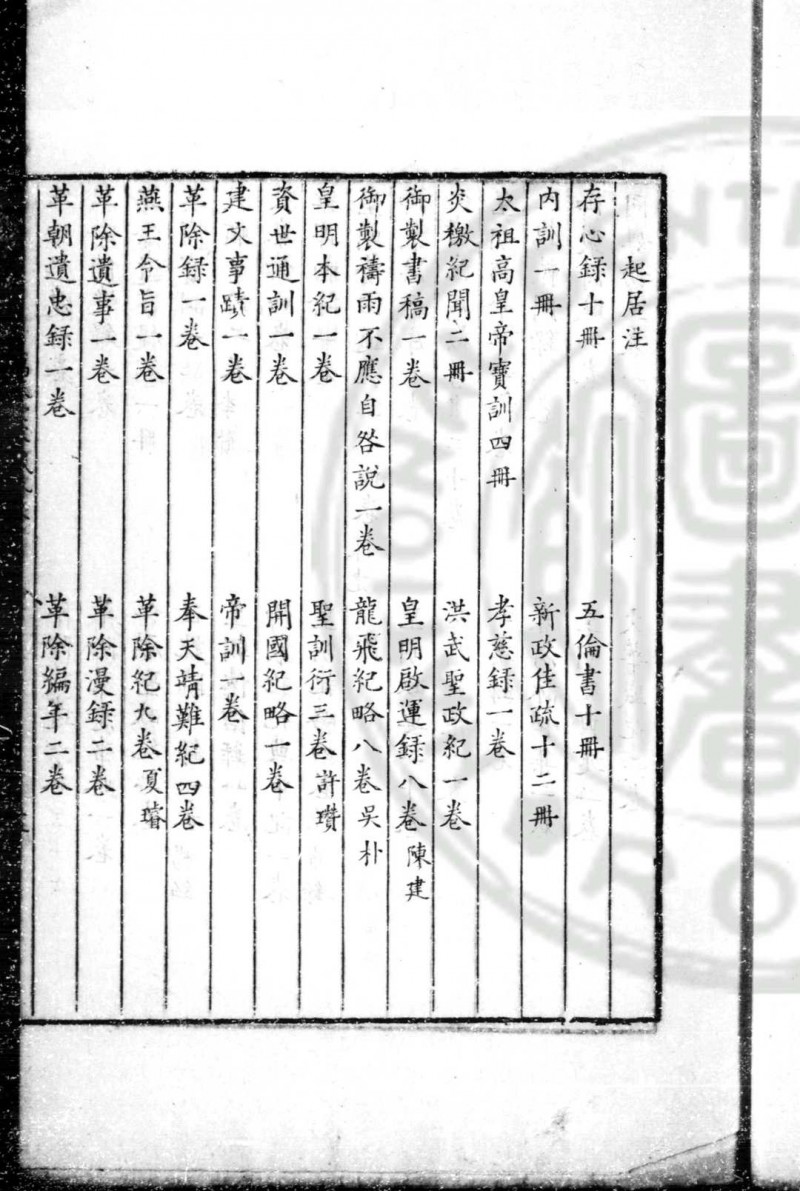 起居注
存心録十冊　五倫書十冊
内訓一冊　新政佳疏十二冊
太祖高皇帝寶訓四冊　孝慈録一卷
炎檄紀聞二冊　洪武聖政紀一卷
御製書稿一卷　皇明啟運録八卷陳建
御製禱雨不應自咎說一卷　龍飛紀略八卷吳朴
皇明本紀一卷　聖訓衍三卷許瓚
資世通訓一卷　開國紀略一卷
建文事蹟一卷　帝訓一卷
革除録一卷　奉天靖難紀四卷
燕王令旨一卷　革除紀九卷夏㻞
革除遺事一卷　革除漫録二卷
革朝遺忠録一卷　革除編年二卷